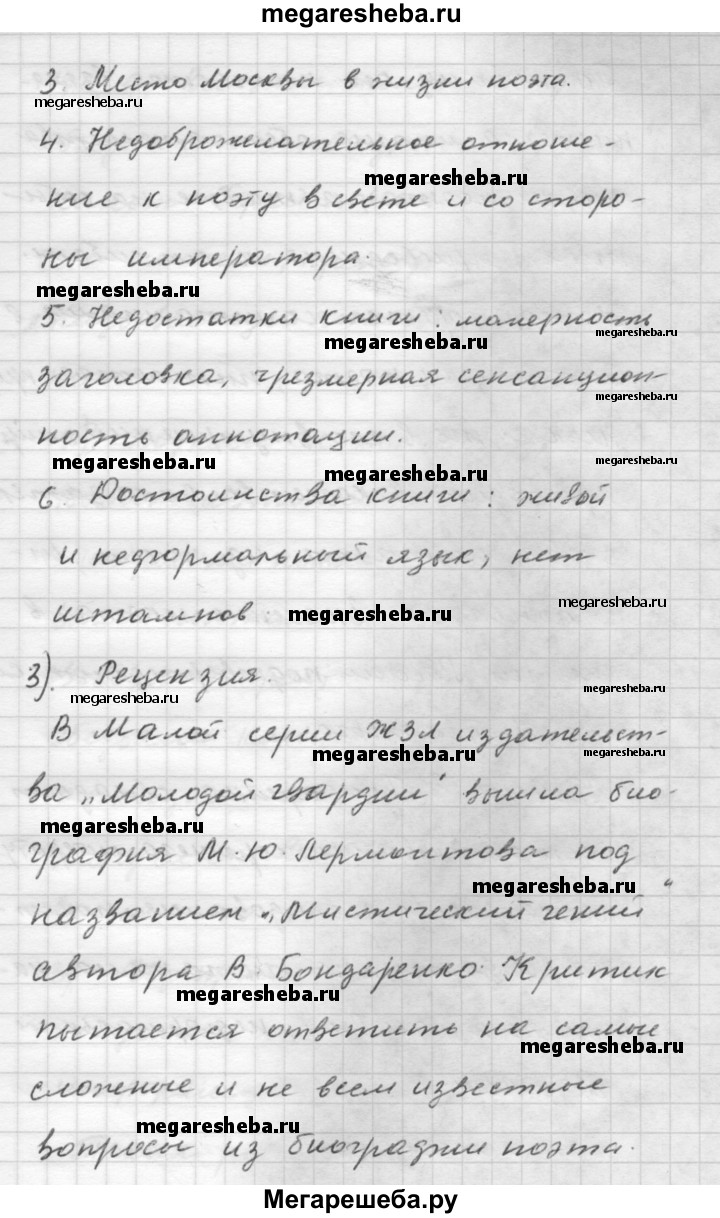 megaresheba.ru
3. Место Москвы в жизни поэта.
megaresheba.ru
4. Недоброжелательное отноше-
megaresheba.ru
ние к поэту в свете и со сторо-
ны императора.
megaresheba.ru
5. Недостатки книги: манерность
megaresheba.ru
megaresheba.ru
заголовка, чрезмерная сенсацион-
megaresheba.ru
ность аннотации.
megaresheba.ru
megaresheba.ru
megaresheba.ru
6. Достоинства книги: живой
и неформальный язык, нет
megaresheba.ru
штампов.
megaresheba.ru
3). Рецензия.
megaresheba.ru
megaresheba.ru
В Малой серии ЖЗЛ издательст-
megaresheba.ru
megaresheba.ru
ва „Молодой гвардии“ вышла био-
megaresheba.ru
графия М.Ю. Лермонтова под
megaresheba.ru
названием „Мистический гений“
автора В. Бондаренко. Критик
megaresheba.ru
пытается ответить на самые
megaresheba.ru
сложные и не всем известные
megaresheba.ru
вопросы из биографии поэта.
Мегарешеба.ру